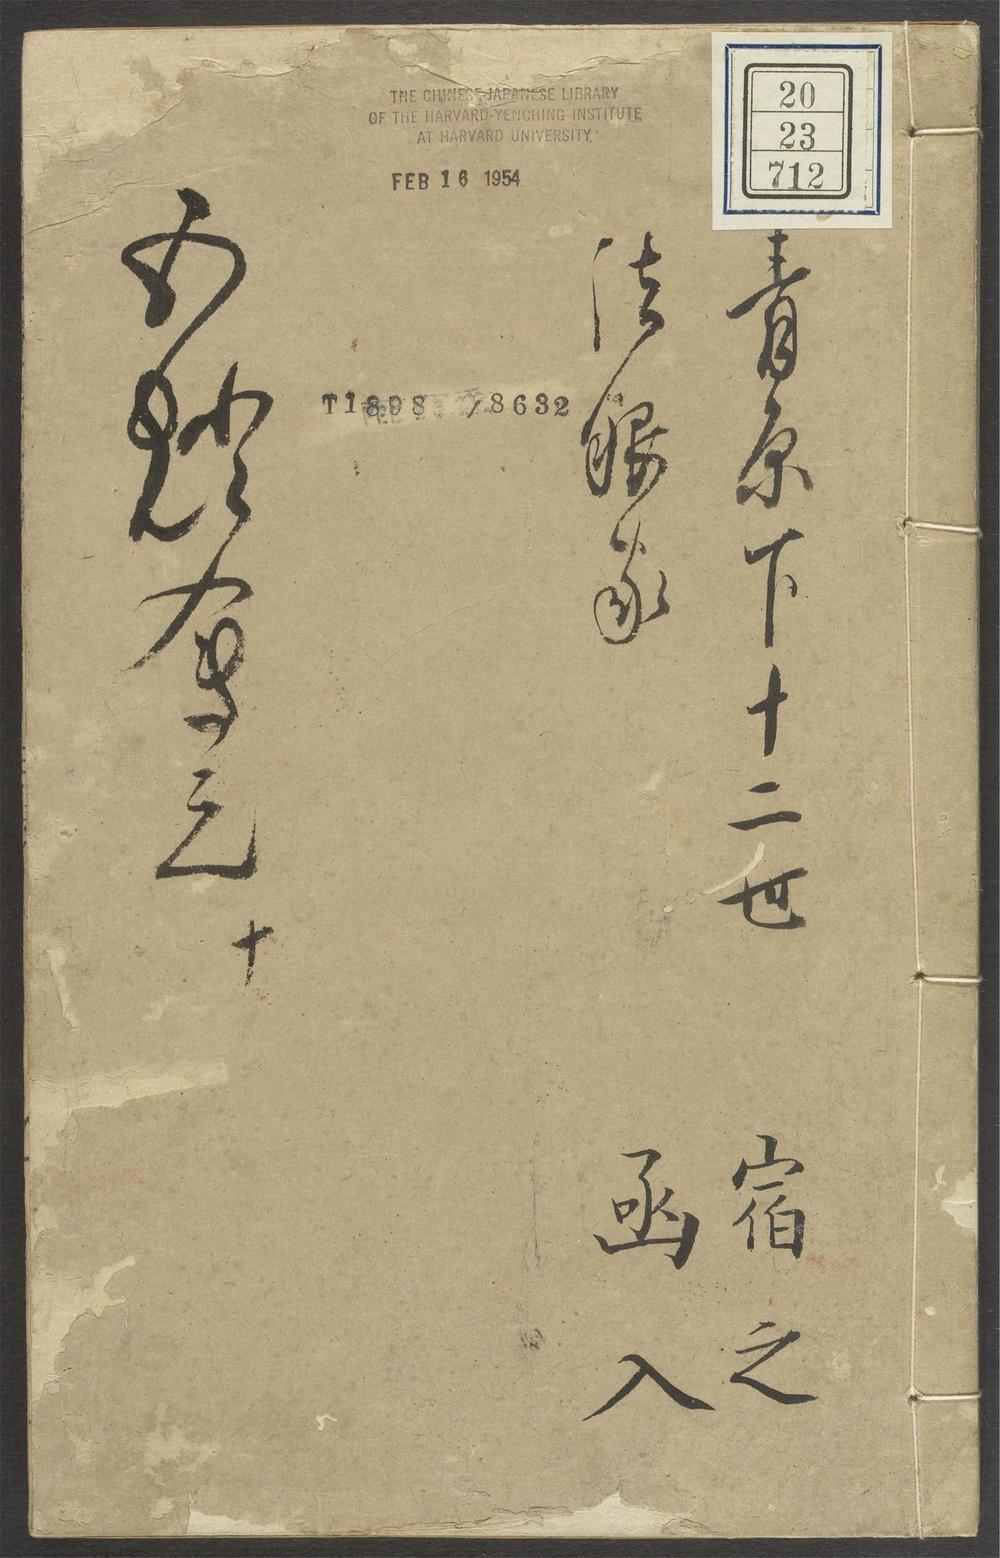 THE CHINESE-JAPANESE LIBRARY
OF THE HARVARD-YENCHING INSTITUTE
AT HARVARD UNIVERSITY
FEB 16 1954
20
23
712
青原下十二世
法眼家
宿之
函入
T1898 /8632
五燈會元 十